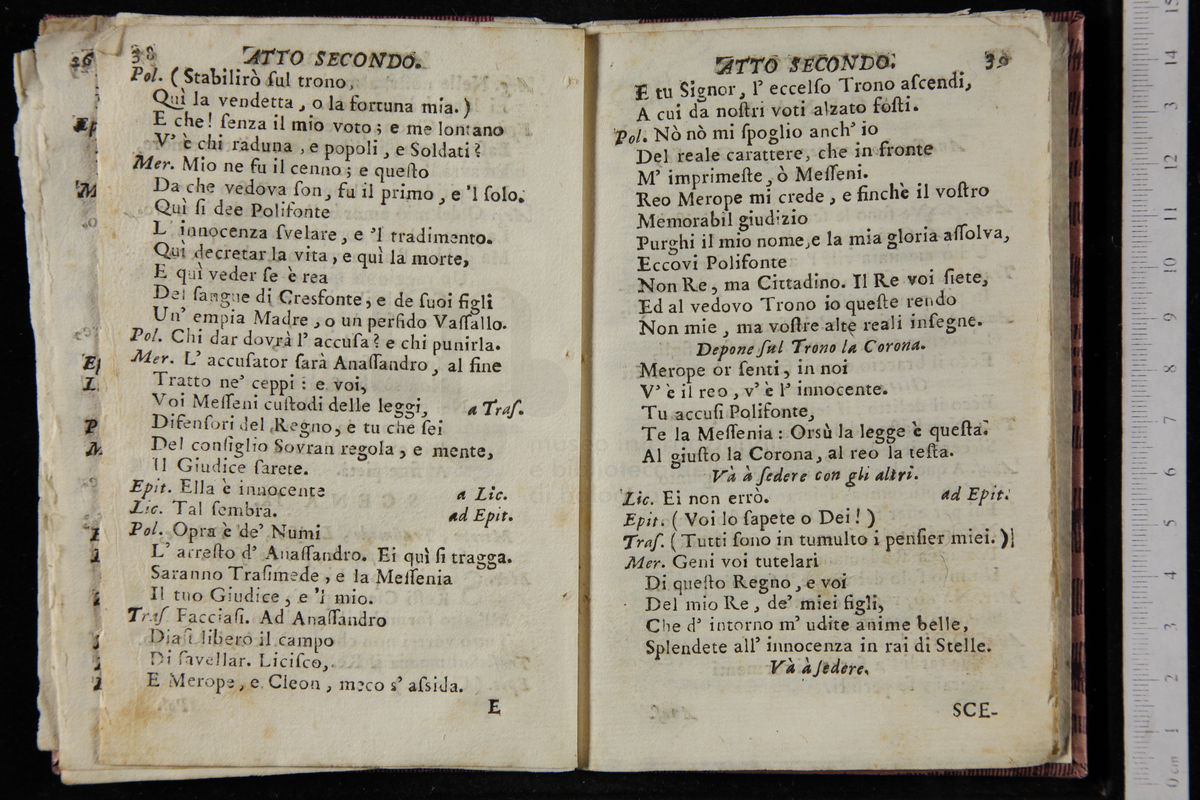 38
ATTO SECONDO.
Pol. ( Stabilirò ſul trono,
Quì la vendetta, o la fortuna mia. )
E che! ſenza il mio voto; e me lontano
V' è chi raduna, e popoli, e Soldati?
Mer. Mio ne fu il cenno; e queſto
Da che vedova ſon, fu il primo, e 'l ſolo.
Quì ſi dee Polifonte
L' innocenza ſvelare, e 'l tradimento.
Quì decretar la vita, e quì la morte,
E quì veder ſe è rea
Del ſangue di Cresfonte, e de ſuoi figli
Un' empia Madre, o un perfido Vaſſallo.
Pol. Chi dar dovrà l' accuſa? e chi punirla.
Mer. L' accuſator ſarà Anaſſandro, al fine
Tratto ne' ceppi: e voi,
Voi Meſſeni cuſtodi delle leggi, a Traſ.
Difenſori del Regno, e tu che ſei
Del conſiglio Sovran regola, e mente,
Il Giudice ſarete.
Epit. Ella è innocente a Lic.
Lic. Tal ſembra. ad Epit.
Pol. Opra è de' Numi
L' arreſto d' Anaſſandro. Ei quì ſi tragga.
Saranno Traſimede, e la Meſſenia
Il tuo Giudice, e 'l mio.
Traſ. Facciaſi. Ad Anaſſandro
Diaſi libero il campo
Di favellar. Liciſco,
E Merope, e Cleon, meco s' aſsida.
E
ATTO SECONDO.
39
E tu Signor, l' eccelſo Trono aſcendi,
A cui da noſtri voti alzato foſti.
Pol. Nò nò mi ſpoglio anch' io
Del reale carattere, che in fronte
M' imprimeſte, ò Meſſeni.
Reo Merope mi crede, e finchè il voſtro
Memorabil giudizio
Purghi il mio nome, e la mia gloria aſſolva,
Eccovi Polifonte
Non Re, ma Cittadino. Il Re voi ſiete,
Ed al vedovo Trono io queſte rendo
Non mie, ma voſtre alte reali inſegne.
Depone ſul Trono la Corona.
Merope or ſenti, in noi
V' è il reo, v' è l' innocente.
Tu accuſi Polifonte,
Te la Meſſenia: Orsù la legge è queſta.
Al giuſto la Corona, al reo la teſta.
Và à ſedere con gli altri.
Lic. Ei non errò. ad Epit.
Epit. ( Voi lo ſapete o Dei! )
Traſ. ( Tutti ſono in tumulto i penſier miei. )
Mer. Geni voi tutelari
Di queſto Regno, e voi
Del mio Re, de' miei figli,
Che d' intorno m' udite anime belle,
Splendete all' innocenza in rai di Stelle.
Và à ſedere.
SCE-